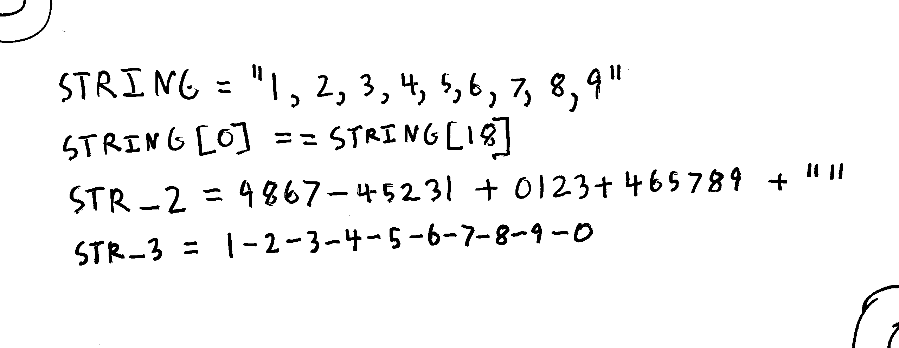 STRING = "1, 2, 3, 4, 5, 6, 7, 8, 9"
STRING [0] == STRING [18]
STR_2 = 9867-45231 + 0123+465789 + ""
STR_3 = 1-2-3-4-5-6-7-8-9-0